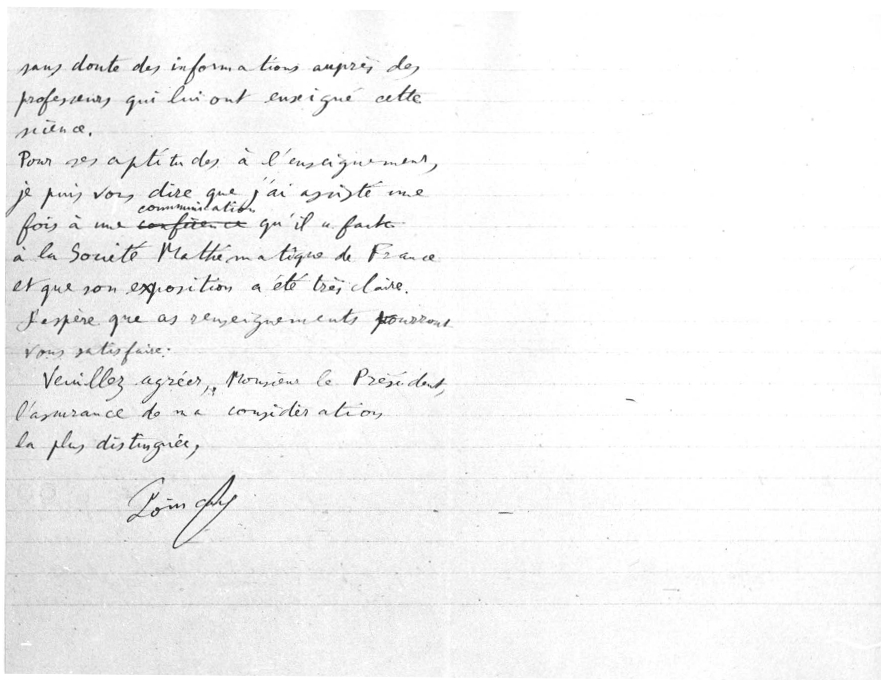 sans doute des informations auprès des
professeurs qui lui ont enseigné cette
science.
Pour ses aptitudes à l'enseignement,
je puis vous dire que j'ai assisté une
communication
fois à une conférence qu'il a faite
à la Société Mathématique de France
et que son exposition a été très claire.
J'espère que ces renseignements pourront
vous satisfaire.
Veuillez agréer, Monsieur le Président,
l'assurance de ma considération
la plus distinguée,
Poincaré